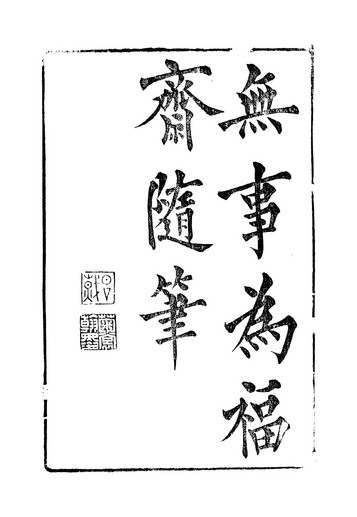 無事為福
齋隨筆